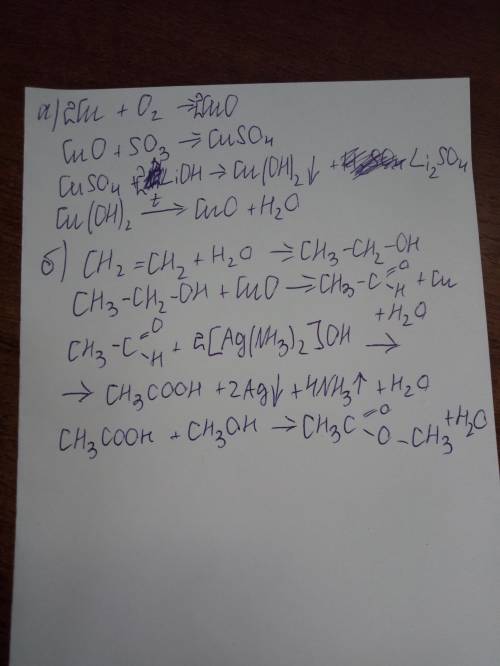 а) 2Cu + O2 → 2CuO
CuO + SO3 → CuSO4
CuSO4 + 2LiOH → Cu(OH)2↓ + Li2SO4
Cu(OH)2 —t→ CuO + H2O
б) CH2=CH2 + H2O → CH3-CH2-OH
CH3-CH2-OH + CuO → CH3-C=O H + Cu
+ H2O
CH3-C=O H + 2[Ag(NH3)2]OH →
→ CH3COOH + 2Ag↓ + 4NH3↑ + H2O
CH3COOH + CH3OH → CH3C=O O-CH3 + H2O